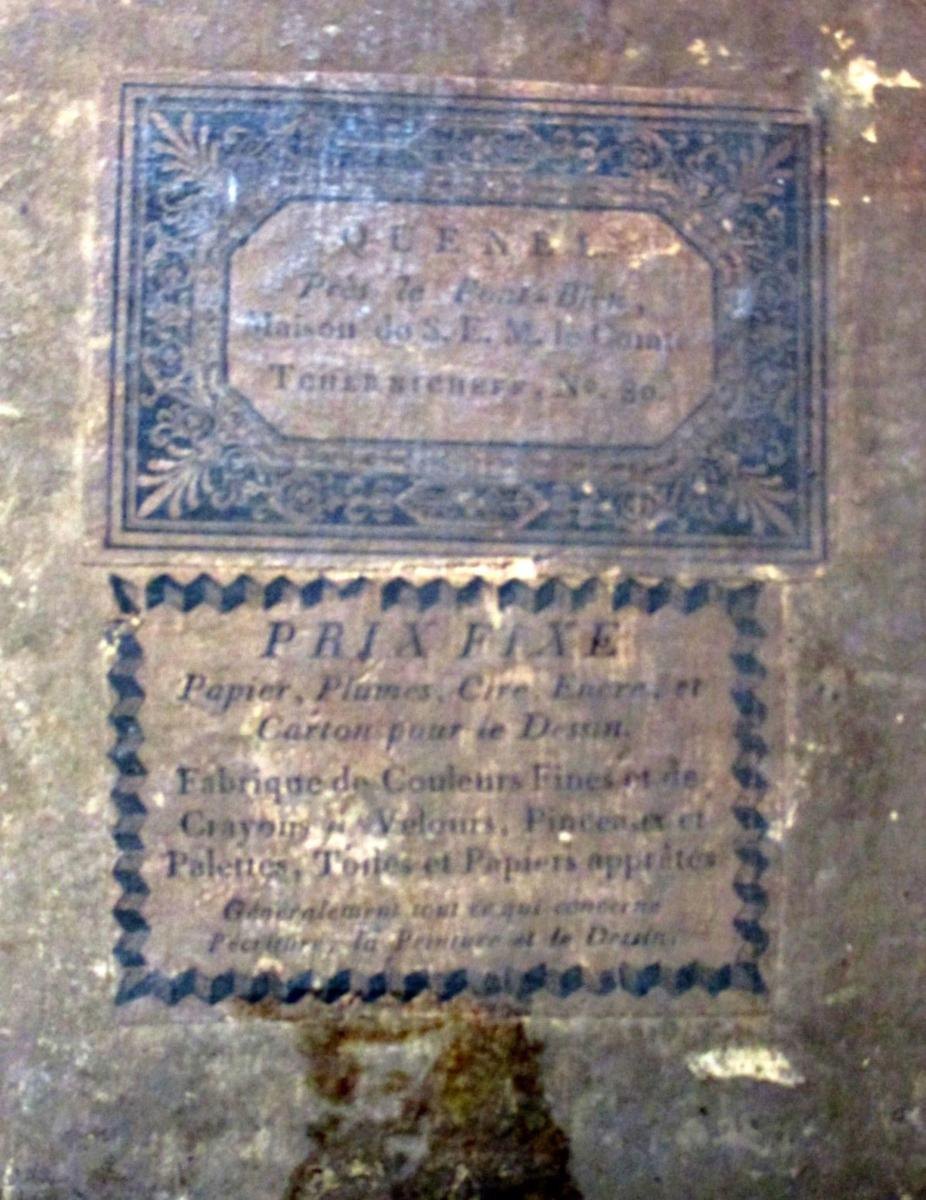 QUENEL
Près le Pont-Bleu,
Maison de S. E. M. le Comte
TCHERNICHEFF, No. 80.
PRIX FIXE
Papier, Plumes, Cire, Encre, et
Carton pour le Dessin.
Fabrique de Couleurs Fines et de
Crayons Velours, Pinceaux et
Palettes, Toiles et Papiers apprêtés
Généralement tout ce qui concerne
l'écriture, la Peinture et le Dessin.